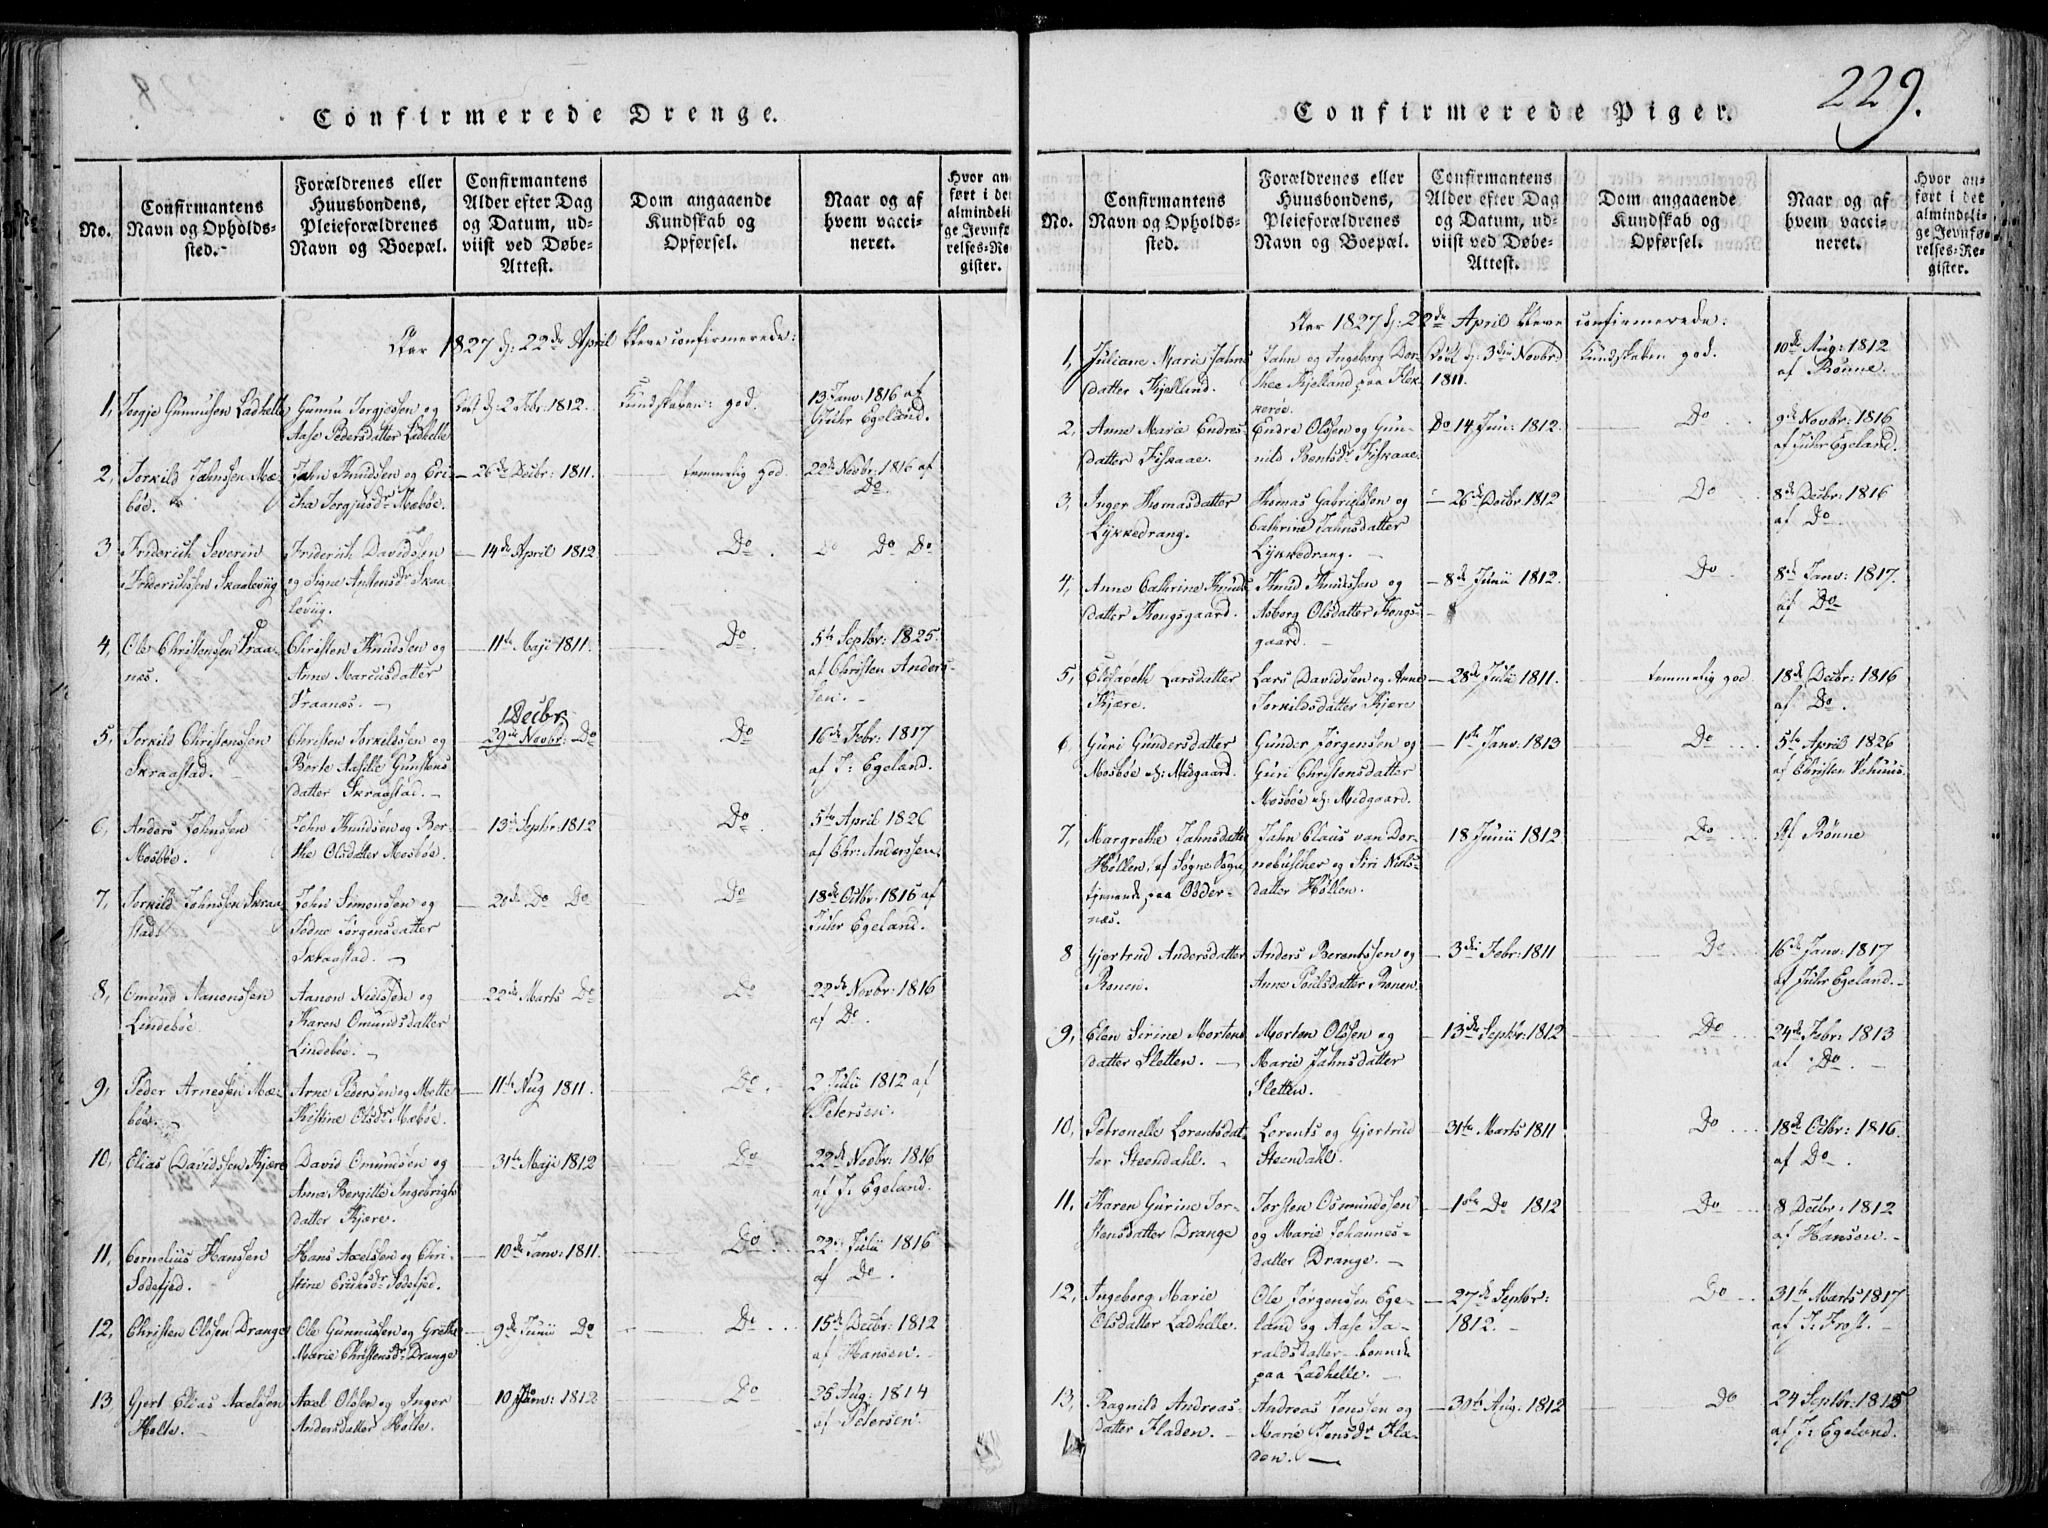 229.
Confirmerede Drenge.
No.
Confirmantens
Navn og Opholds-
sted.
Forældrenes eller
Huusbondens,
Pleieforældrenes
Navn og Boepæl.
Confirmantens
Alder efter Dag
og Datum, ud-
viist ved Døbe-
Attest.
Dom angaaende
Kundskab og
Opførsel.
Naar og af
hvem vacci-
neret.
Hvor an-
ført i det
almindeli-
ge Jevnfø-
relses-Re-
gister.
Aar 1827 d: 22de April bleve confirmerede:
1, Torgje Gunnusen Ladhelle
Gunnu Torgjessen og
Aase Pedersdatter Ladhelle
Døbt d: 2 Febr: 1812.
Kundskaben: god.
13 Janv: 1816 af
GJuhr Egeland.
2, Torkild Jahnssen Mæ-
bøe.
Jahn Knudsen og Eri-
cha Torgjusdr Mæbøe.
— 26de Decbr: 1811.
temmelig god.
22de Novbr: 1816 af
Do.
3 Friderich Severin
Friderichssen Skaaleviig
Friderich Davidssen
og Signe Anstensdr Skaa
leviig.
— 14de April 1812
Do.
Do Do Do
4, Ole Christensen Kraa-
næs.
Christen Knudssen og
Anne Marcusdatter
Kraanæs. —
— 11te Maji 1811.
Do.
5te Septbr: 1825.
af Christen Anders-
sen. —
5, Torkild Christenssen
Skraastad. —
Christen Torkeldssen og
Berte Aasille Gunstens
datter Skraastad. —
1 Decbr:
29de Novbr: Do
Do
16de Febr: 1817
af J: Egeland.
6, Anders Johnssen
Mosbøe.
John Knudsen og Ber-
the Olsdatter Mosbøe.
— 13de Septbr: 1812
Do.
5te April 1826
af Chr: Anderssen.
7, Torkild Johnssen Skraa
stad.
John Simonsen og
Todne Jørgensdatter
Skraastad. —
— 20de Do Do
Do
18de Octbr: 1816 af
Juhr Egeland.
8, Omund Aanonssen
Lindebøe.
Aanon Nielssen og
Karen Omundsdatter
Lindebøe. —
— 22de Marts Do
Do
22de Novbr: 1816
af Do.
9, Peder Arnessen Mæ-
bøe.
Arne Pederssen og Mette
Kistine Olsdr Mæbøe.
— 11te Aug 1811.
Do.
2 Julii 1812 af
Petersen.
10, Elias Davidssen Kjære
David Omundsen og
Anna Bergitte Ingebrigts
datter Kjære.
— 31te Maji 1812
Do
22de Novbr: 1816
af J: Egeland.
11, Cornelius Hanssen
Sodefjed.
Hans Axelssen og Chri-
stine Eriksdr Sodefjed.
— 10de Janv: 1811.
Do
22de Julii 1816
af Do.
12, Christen Olssen Drange
Ole Gunnussen og Grethe
Marie Christensdr Drange
— 9de Junii Do
Do
15de Decbr: 1812
af Hansen.
13, Gjert Elias Axelsen
Holte.
Axel Olssen og Inger
Andersdatter Holte.
— 10 Janv: 1812
Do
25 Aug: 1814
af Petersen.
Confirmerede Piger.
No.
Confirmantens
Navn og Opholds-
sted.
Forældrenes eller
Huusbondens,
Pleieforældrenes
Navn og Boepæl.
Confirmantens
Alder efter Dag
og Datum, ud-
viist ved Døbe-
Attest.
Dom angaaende
Kundskab og
Opførsel.
Naar og af
hvem vacci-
neret.
Hvor an-
ført i det
almindeli-
ge Jevnfø-
relses-Re-
gister.
Aar 1827 d: 22de April bleve confirmerede:
1, Juliane Marie Jahns
datter Kjelland.
Jahn og Ingeborg Dor-
thee Kjelland paa Flek-
kerøe.
Døbt d: 3die Novbr:
1811.
Kundskaben god.
10de Aug: 1812
af Rönne.
2, Anne Marie Endres-
datter Fiskaae.
Endre Olssen og Gun-
nild Bentsdr Fiskaae.
Do 14 Jun: 1812.
Do
9de Novbr: 1816
af Juhr Egeland.
3, Inger Thomasdatter
Lykkedrang.
Thomas Gabrielssen og
Cathrine Jahnsdatter
Lykkedrang. —
— 26de Decbr 1812
Do
8de Decbr: 1816
af Do.
4, Anne Cathrine Knuds
datter Kongsgaard.
Knud Knudssen og
Asborg Olsdatter Kongs-
gaard. —
— 8de Junii 1812.
Do
8de Janv: 1817.
af Do.
5, Elisabeth Larsdatter
Kjære.
Lars Davidssen og Anne
Torkildsdatter Kjære
— 28de Julii 1811.
temmelig god
18de Decbr: 1816
af Do.
6 Guri Gundersdatter
Mosbøe d: Midgaard.
Gunder Jørgensen og
Guri Christensdatter
Mosbøe d: Midgaard.
— 1ste Janv: 1813
Do
5te April 1826
af Christen
7, Margrethe Jahnsdatter
Høllen, af Søgne Sogn,
tjenende paa Odder-
næs.
Jahn Claus van Dor-
nebuscher og Siri Niels-
datter Høllen.
18 Junii 1812
Do
Af Rönne
8 Gjertrud Andersdatter
Ronen.
Anders Berentssen og
Anne Poulsdatter Ronen.
— 3die Febr: 1811
Do
16de Janv: 1817
af Juhr Egeland.
9, Elen Sirine Mortens
datter Sletten. —
Morten Olssen og
Marie Jahnsdatter
Sletten.
— 13de Septbr: 1812
Do
24de Febr: 1813
af Do.
10, Petronelle Lorentsdat
ter Steendahl.
Lorents og Gjertrud
Steendahl.
— 31te Marts 1811
Do
18de Octbr: 1816.
af Do.
11, Karen Gurine Tor-
stensdatter Drange
Torsten Osmundssen
og Marie Johannes-
datter Drange. —
— 1ste Do 1812
Do
8 Decbr: 1812
af Hansen.
12, Ingeborg Marie
Olsdatter Ladhelle.
Ole Jørgenssen Ege-
land og Aase Ta-
raldsdatter boende
paa Ladhelle.
— 27de Septbr:
1812. —
Do
31te Marts 1817
af J: Frost.
13, Ragnild Andreas-
datter Fladen. —
Andreas Jenssen og
Marie Jensdr Fla-
den. —
— 30te Aug: 1812
Do
24 Septbr: 1815
af J: Egeland.